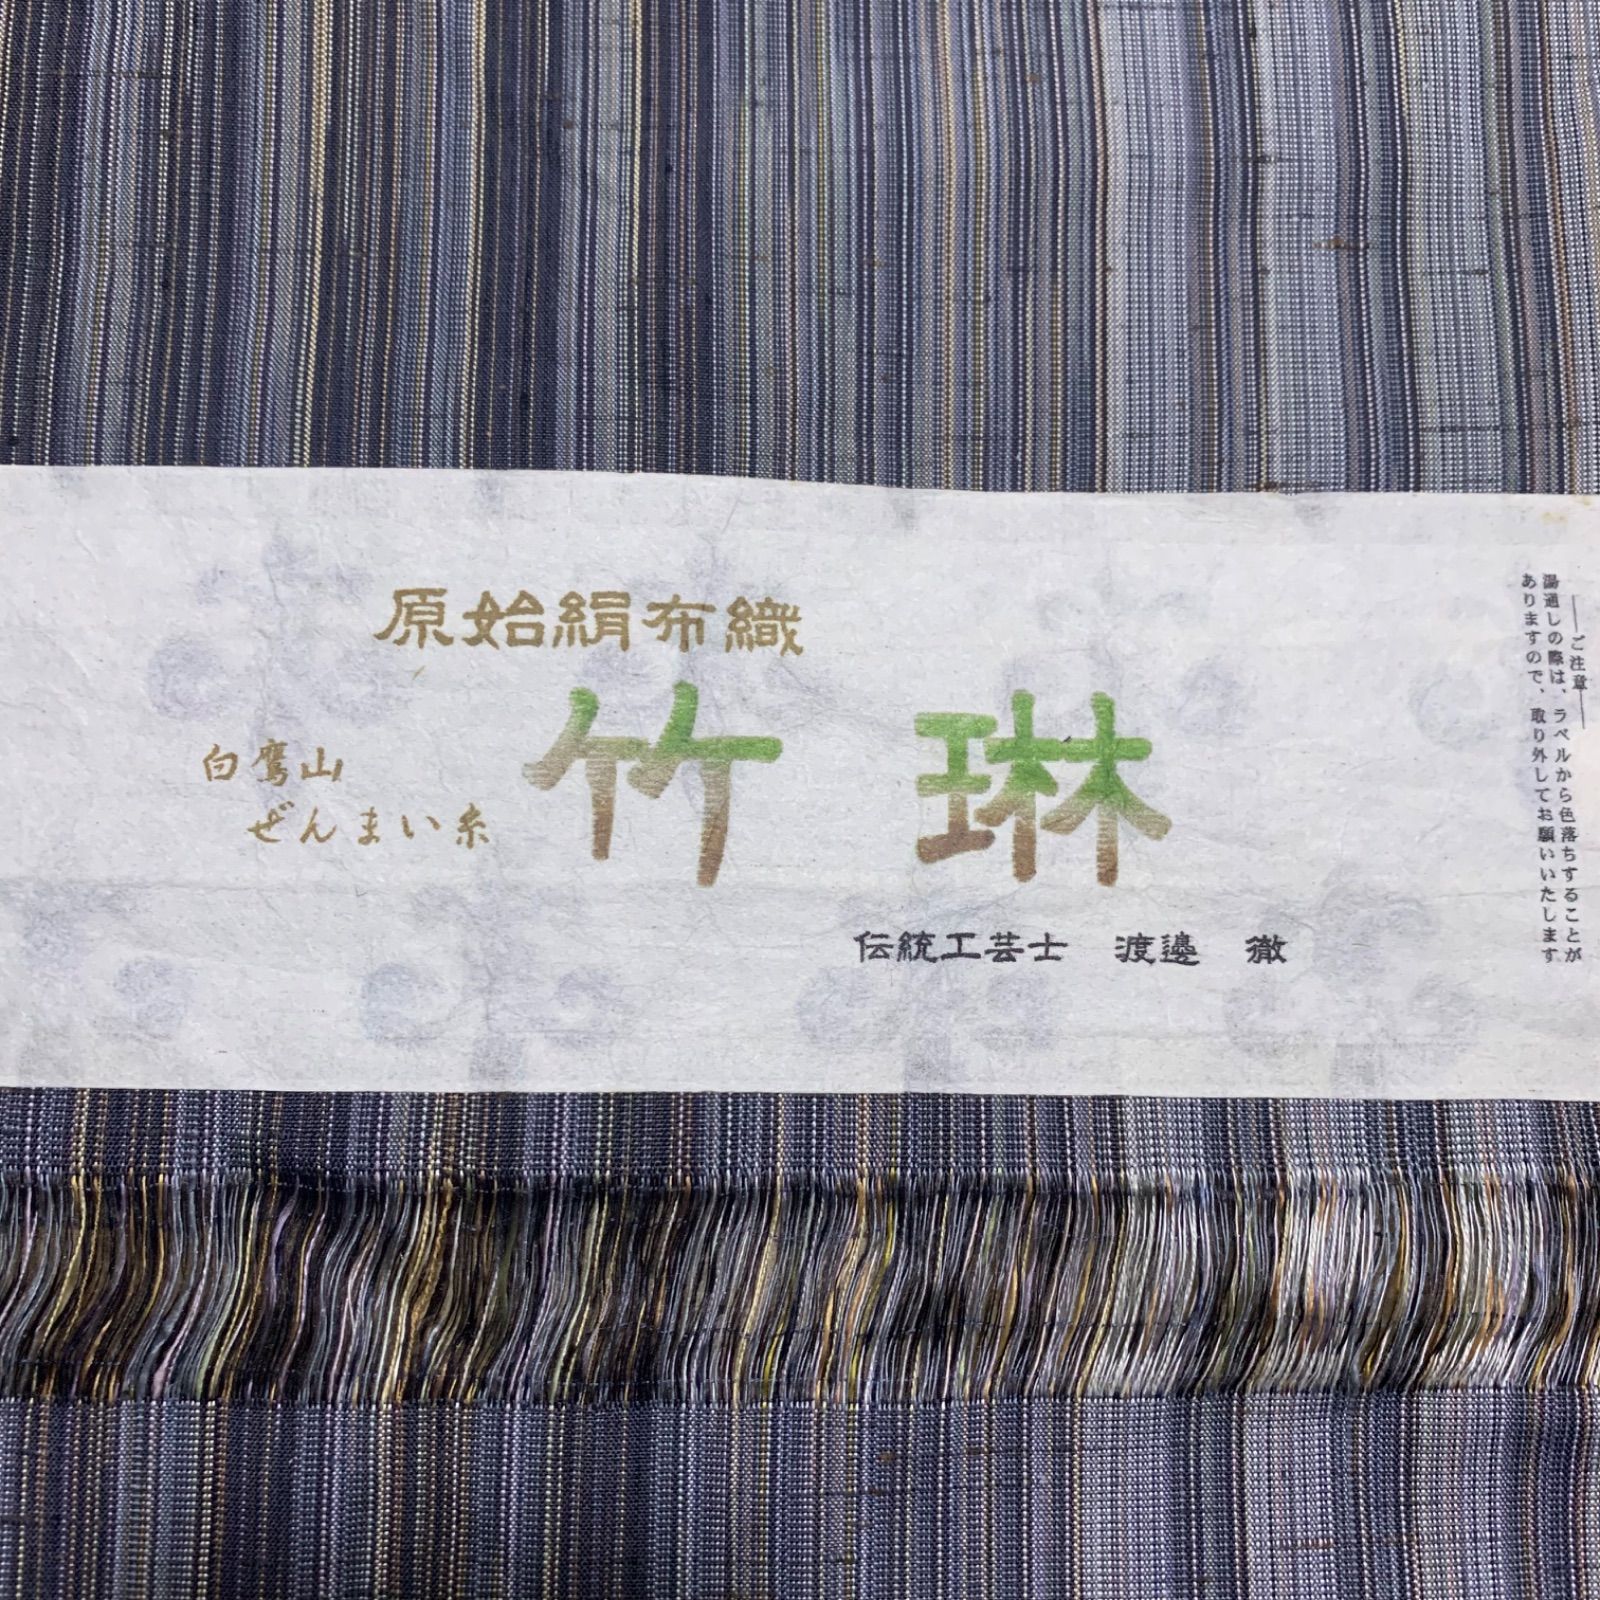 原始絹布織
白鷹山
ぜんまい糸
竹琳
伝統工芸士　渡邊　徹
ご注意
湯通しの際は、ラベルから色落ちすることが
ありますので、取り外してお願いいたします